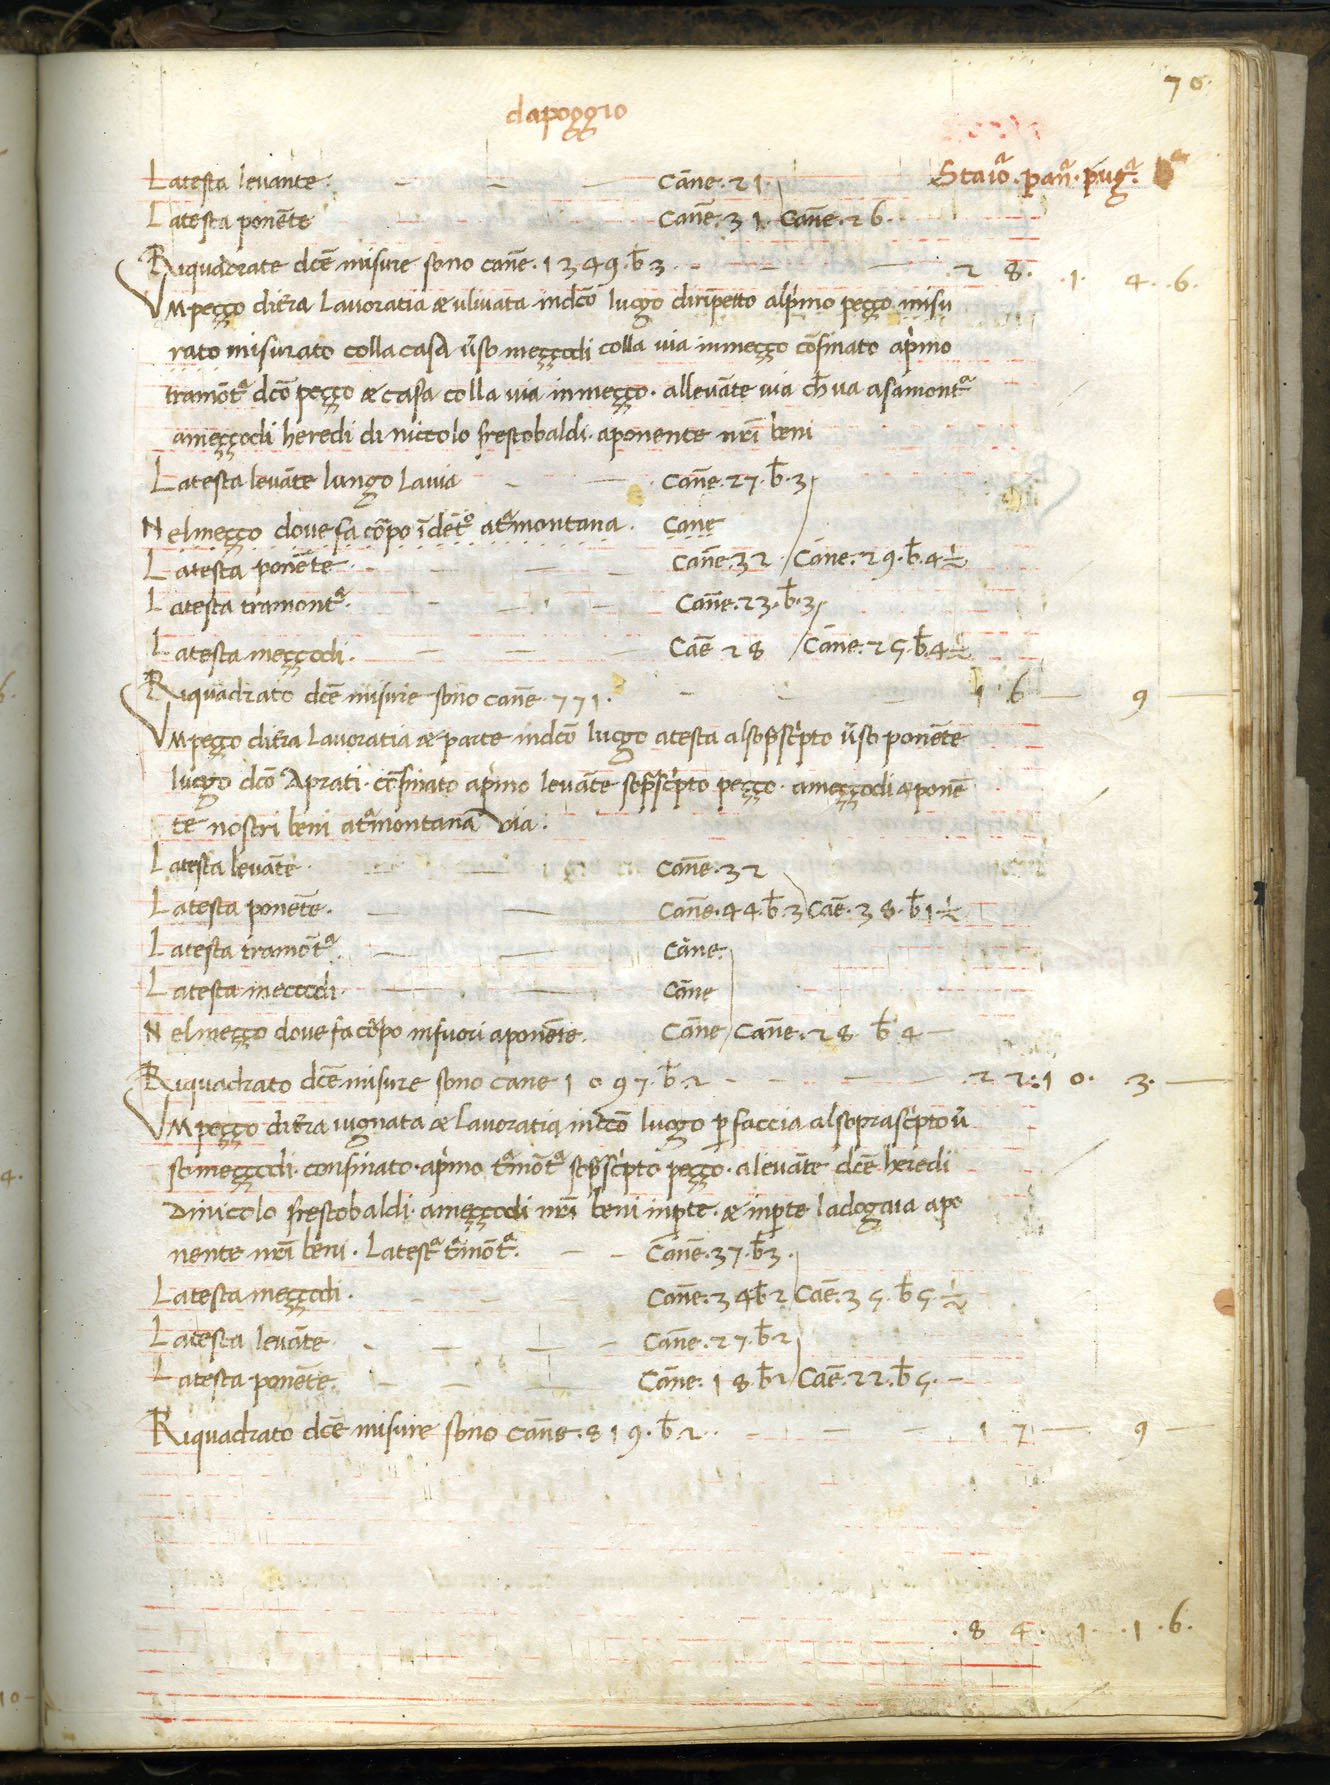 70.
dapoggio
Staioᵃ. pañᵃ. pugᵃ. bᵃ
Latesta levante. Cane. 21.
Latesta ponēte Cane. 31. Cane. 26.
Riquadrate dcē misure sono cane. 1349. b̄ 3. 28. .1. 4. .6.
Vm peçço dit̄ra Lavoratia & ulivata indcō luogo dirinpetto alp̄imo peçço misu
rato misurato colla casa ūso meççodi colla via inmeçço cōfinato ap̄imo
tramōtᵃ dcō peçço & casa colla via inmeçço. allevāte via ch̄ va asamontᵃ
ameççodi heredi di niccolo frescobaldi. aponente nr̄i beni
Latesta levāte lungo Lavia Cane. 27. b̄. 3
Nelmeçço dove fa cōpo īdētº atᵃmontana. Cane
Latesta ponēte. Cane. 32. Cane. 29. b̄. 4 ½
Latesta tramontᵃ. Cane. 23. b̄. 3
Latesta meççodi. Caē 28 Cane. 25. b̄ 4 ½
Riquadrato dcē misure sono cane. 771. 16 — 9 —
Vm peçço dit̄ra Lavoratia & parte indcō luogo atesta alsop̄scīpto ūso ponēte
luogo dcō Aprati. cōfinato ap̄imo levāte sop̄scīpto peçço. ameççodi & ponē
te nostri beni atᵃmontana via.
Latesta levāte. Cane. 32
Latesta ponēte. Cane. 44. b̄. 3 Caē. 38. b̄ 1 ½
Latesta tramōtᵃ. Cane.
Latesta meççodi. Cane
Nelmeçço dove fa cōpo infuori aponēte. Cane Cane. 28 b̄ 4 —
Riquadrato dcē misure sono cane 1097. b̄ 2 22. 10. .3. —
Vm peçço dit̄ra vignata & Lavoratia indcō luogo p̄ faccia alsoprascīpto ū
so meççodi. confinato. ap̄imo tᵃmōtᵃ sop̄scīpto peçço. alevāte dcē heredi
Dinicolo frescobaldi. ameççodi nr̄i beni inp̄te. & inp̄te ladogaia apo
nente nr̄i beni. Latestᵃ tᵃmōtᵃ. Cane. 37. b̄ 3.
Latesta meççodi. Cane. 34 b̄ 2 Caē. 35. b̄ 5. ½
Latesta levāte Cane. 27. b̄ 2
Latesta ponēte. Cane. 18. b̄ 2 Caē. 22. b̄ 5. —
Riquadrato dcē misure sono Cane. 819. b̄ 2. 17 — 9 —
.84. .1. .1. 6.